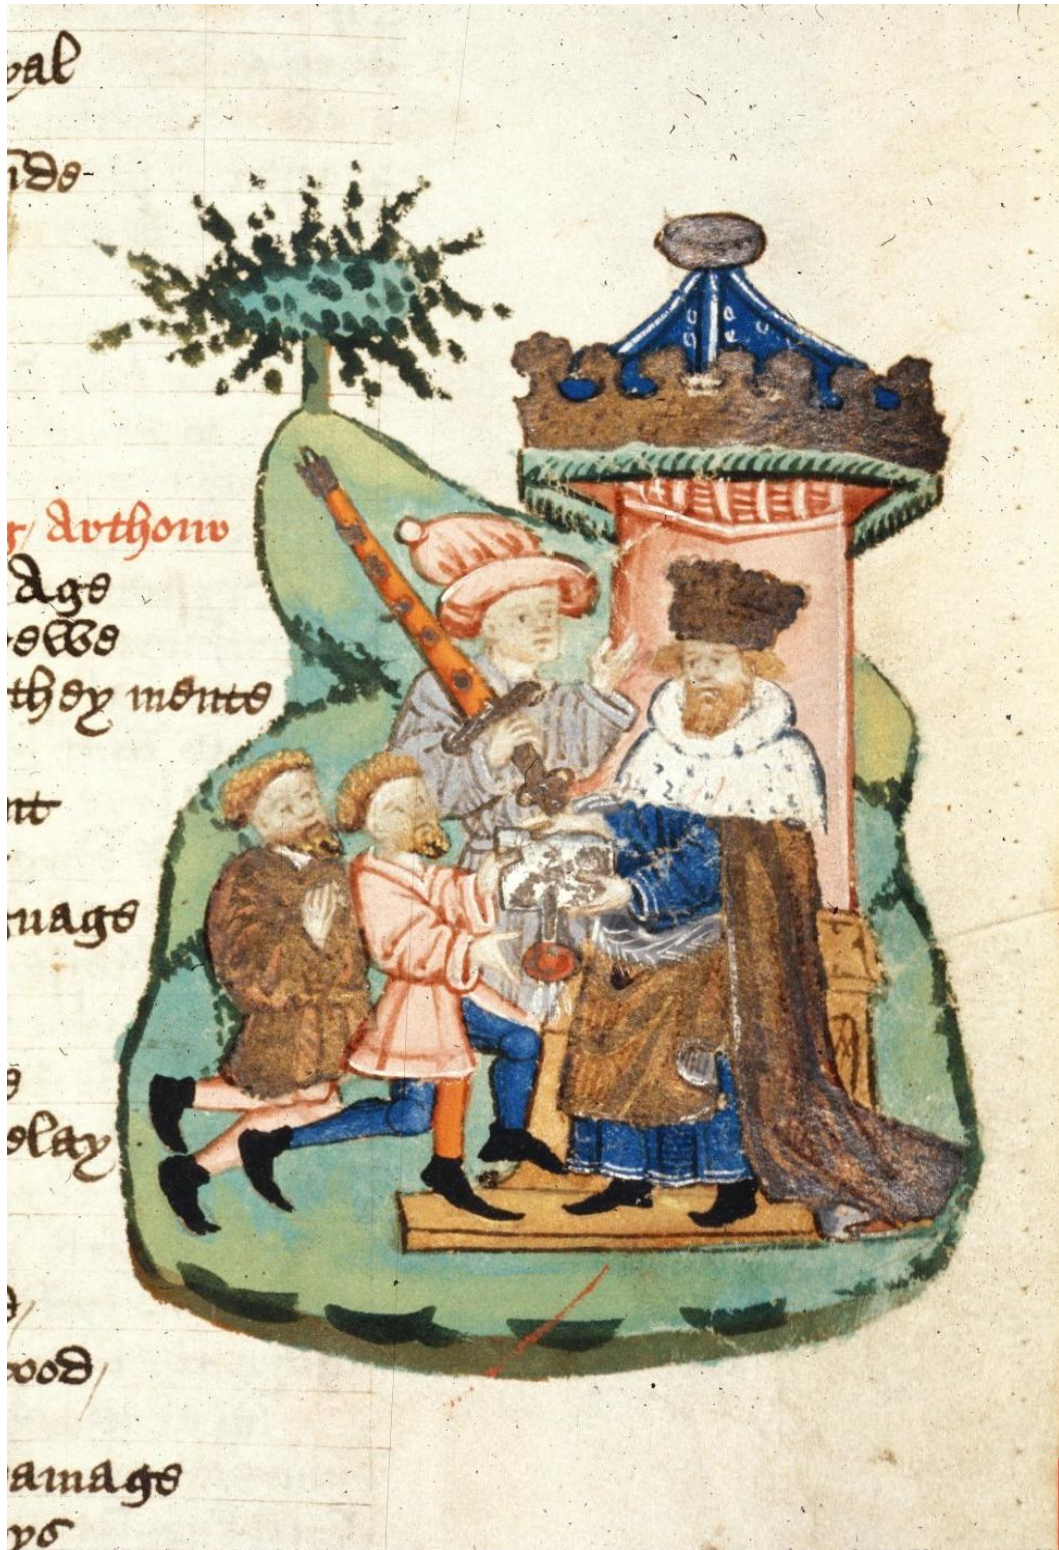 yal
nde
g/ Arthour
Age
ewe
they mente
nt
uage
elay
wod/
amage
ys